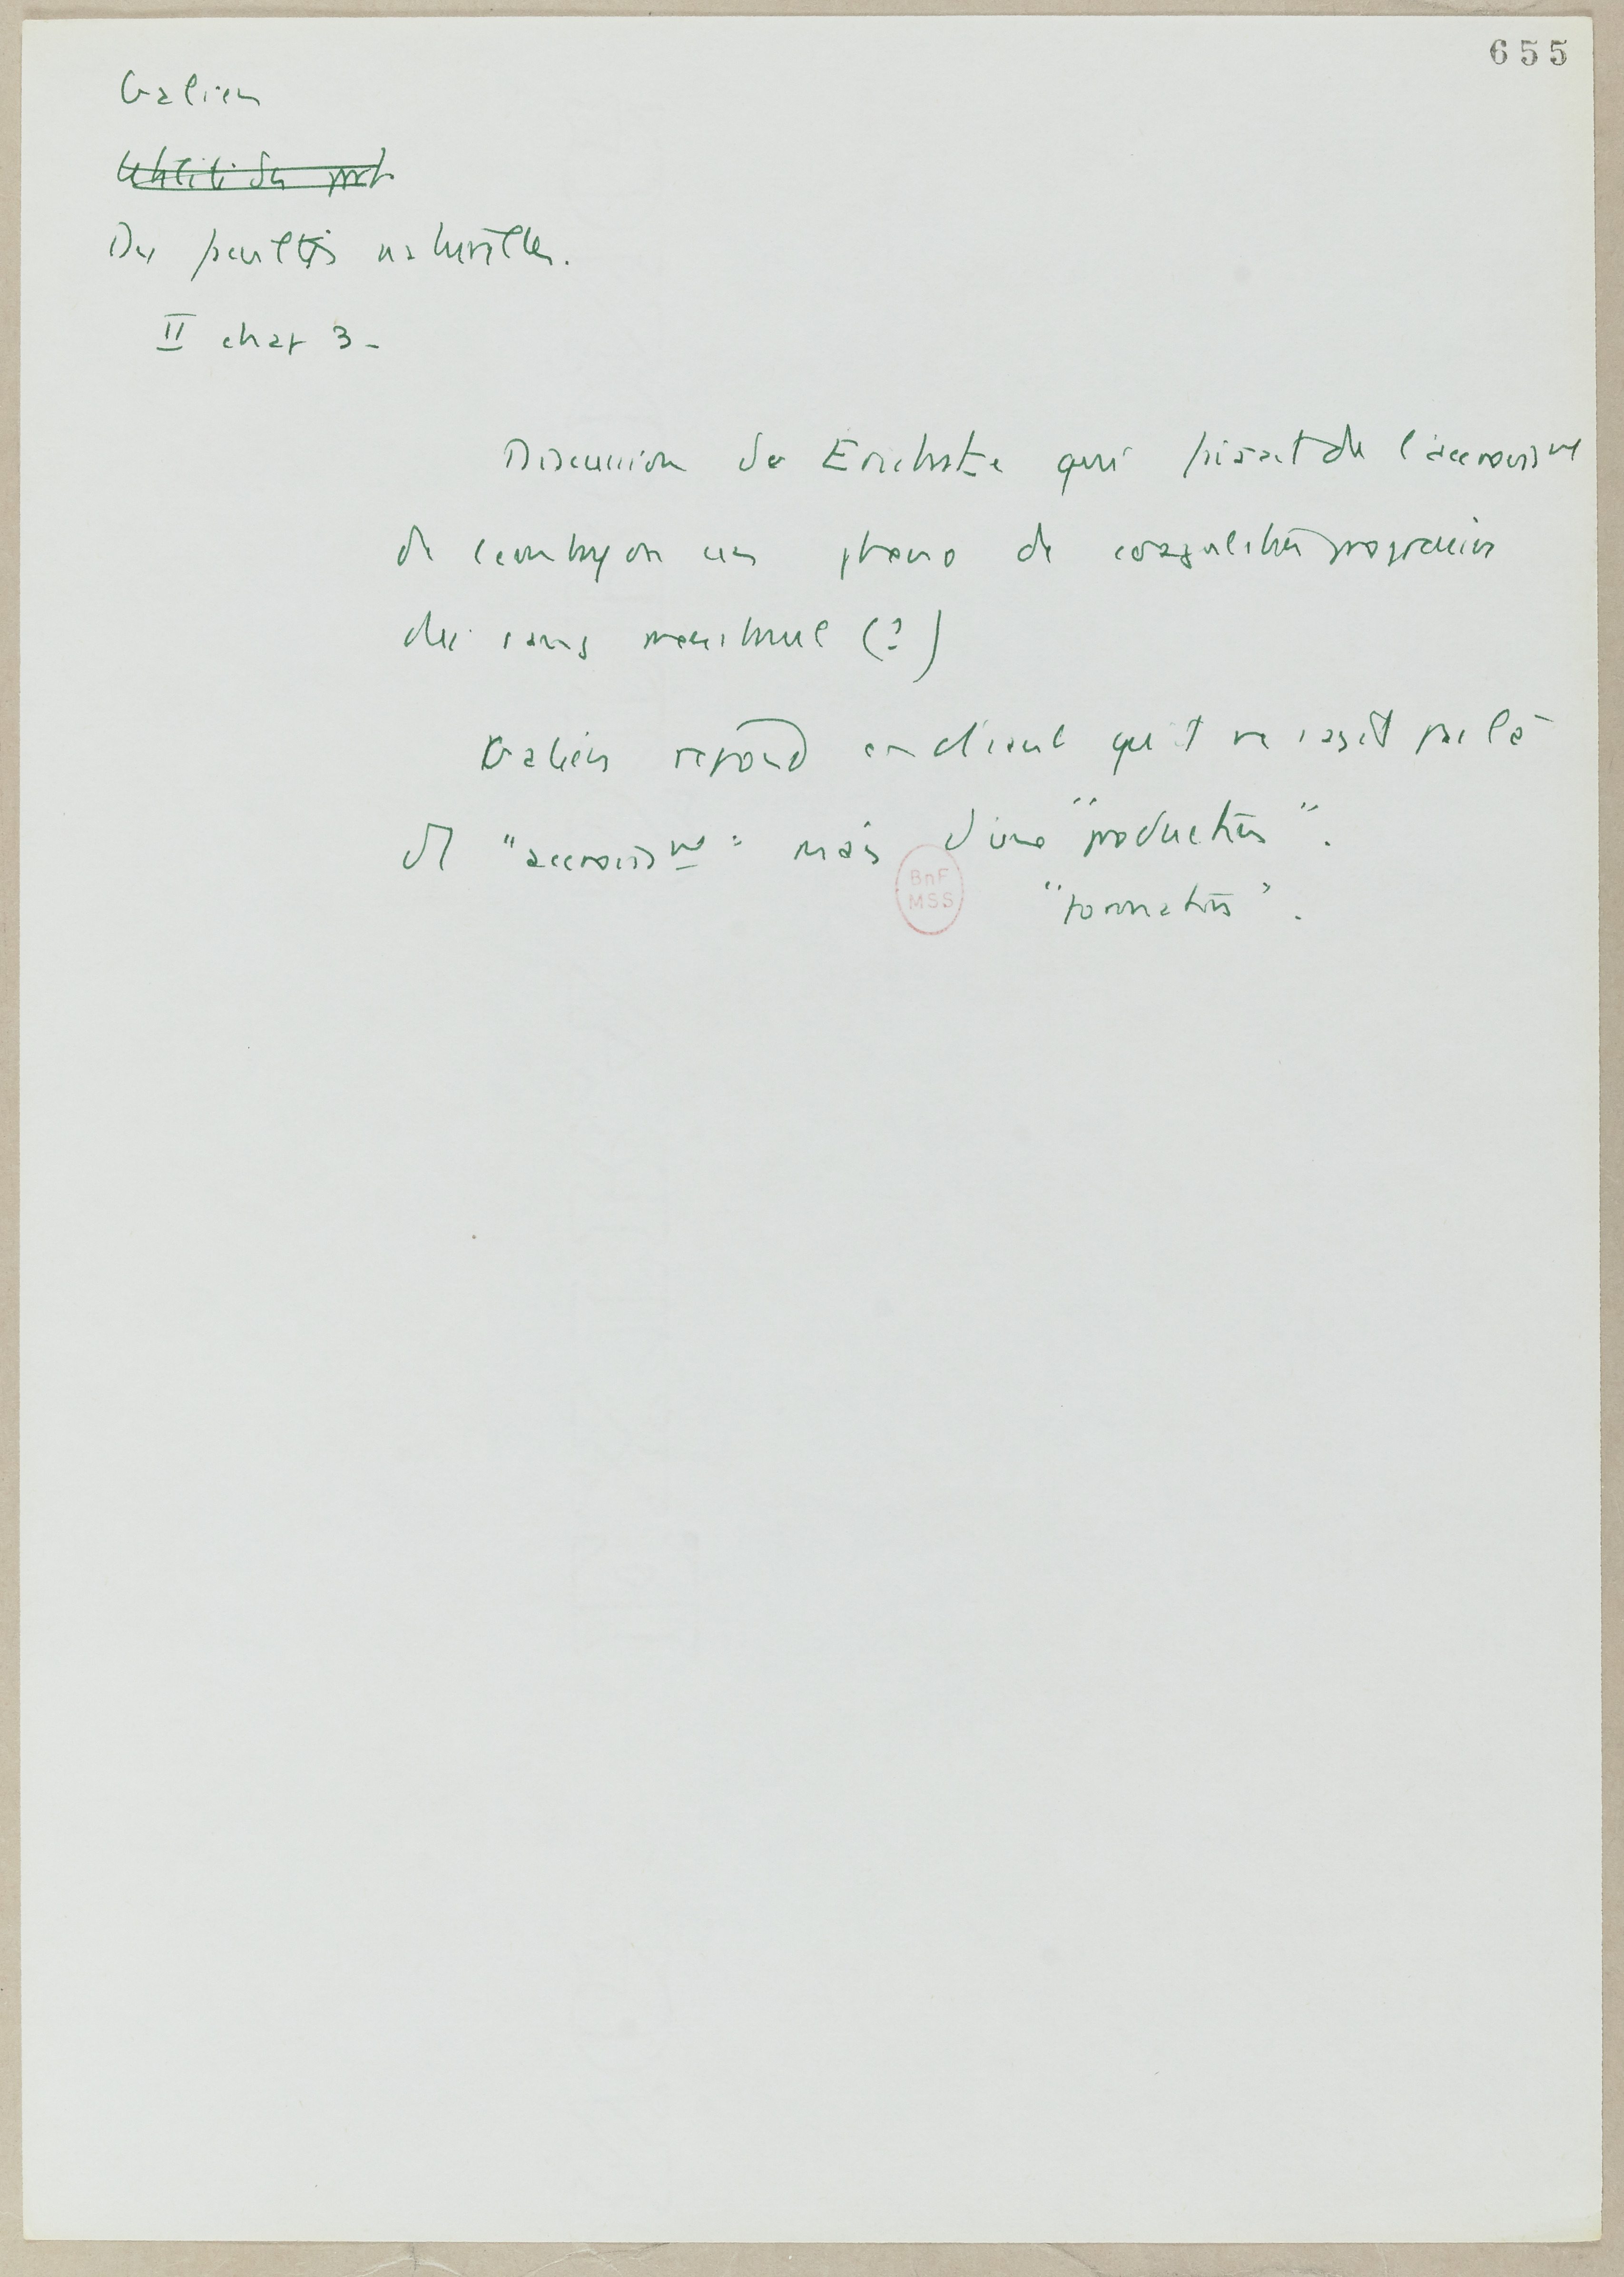 655
Galien
Utilité des part.
Des facultés naturelles.
II chap 3 -
Discussion de Erasistrate qui faisait de l'accroissmt
de l'embryon un phéno de coagulation progressive
du sang menstruel (?)
Galien répond en disant qu'il ne s'agit pas là
d' "accroissmt" mais d'une "production".
BnF
MSS
"formation".